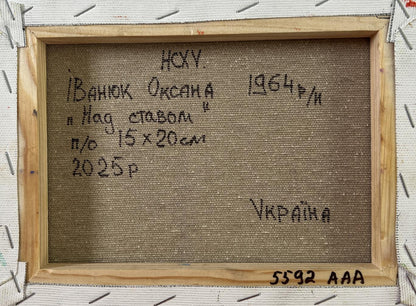 НСХУ.
Іванюк Оксана 1964 р/н
„Над ставом"
п/о 15×20см
2025р
Україна
5592 ААА